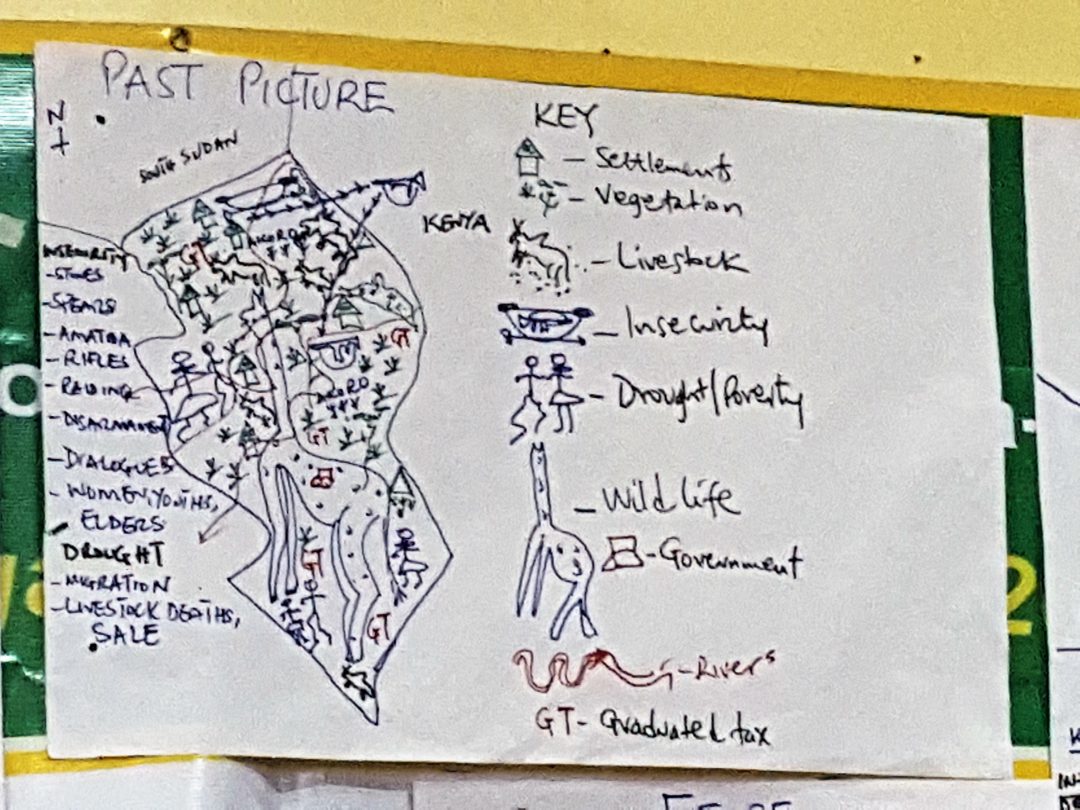 PAST PICTURE
N
SOUTH SUDAN
KENYA
INSECURITY
- STONES
- SPEARS
- AMATIDA
- RIFLES
- RAIDING
- DISARMAMENT
- DIALOGUES
- WOMEN, YOUTHS,
ELDERS
DROUGHT
- MIGRATION
- LIVESTOCK DEATHS,
SALE
GT
GT
GT
GT
GT
KEY
- Settlements
- Vegetation
- Livestock
- Insecurity
- Drought/Poverty
- Wild life
- Government
- Rivers
GT - Graduated tax
2